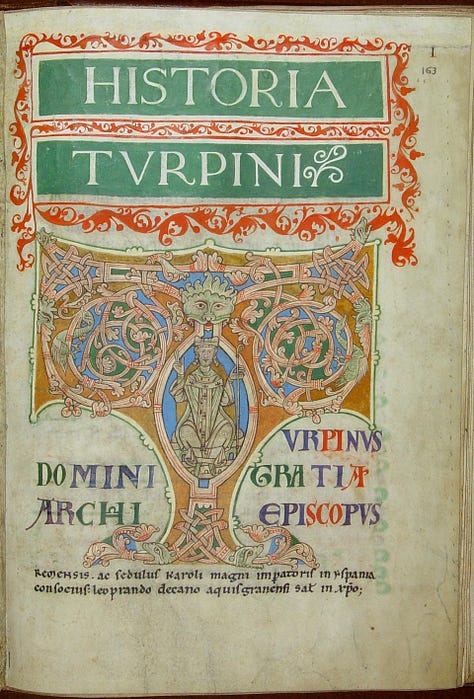 I
163
HISTORIA
TVRPINI
T VRPINVS
DOMINI GRATIA
ARCHI EPISCOPVS
Remensis. ac sedulus karoli magni impatoris in
consocius. leoprando decano aquisgranensi salt in xpo;